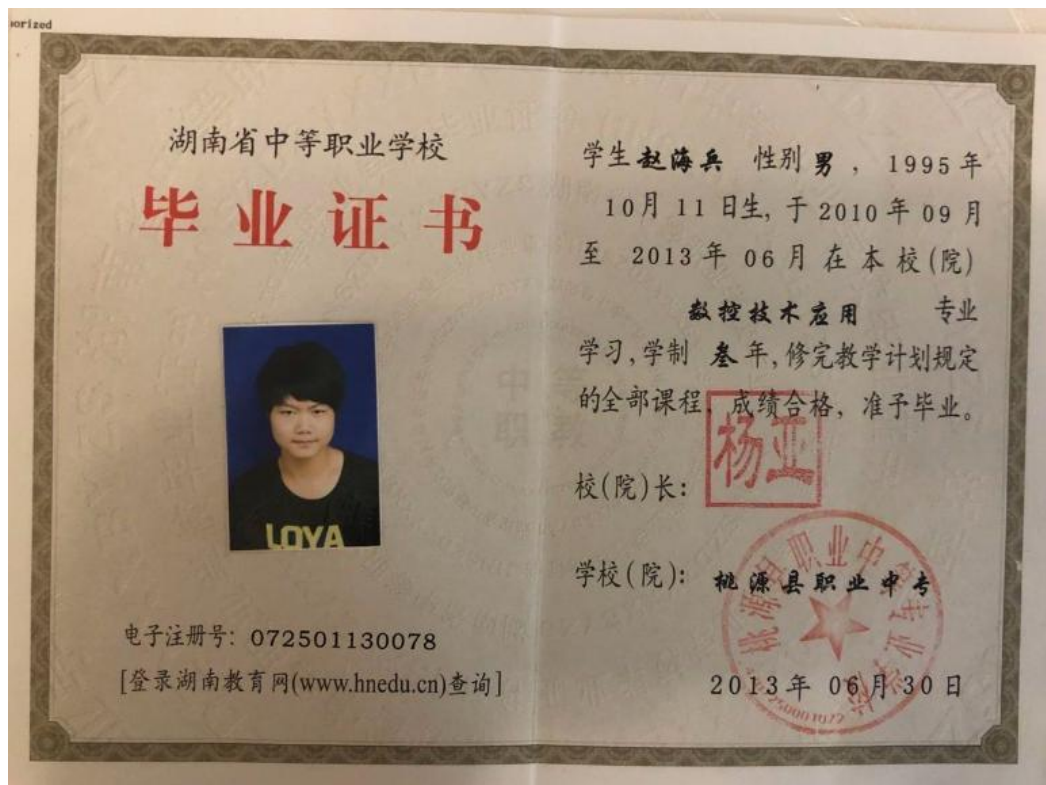 orized
湖南省中等职业学校
毕业证书
LOYA
电子注册号: 072501130078
[登录湖南教育网(www.hnedu.cn)查询]
学生赵海兵 性别男, 1995年
10月 11 日生, 于 2010 年 09 月
至 2013 年 06 月 在 本 校(院)
数控技术应用 专业
学习,学制 叁 年,修完教学计划规定
的全部课程, 成绩合格, 准予毕业。
校(院)长:
杨亚
学校(院): 桃源县职业中专
桃源县职业中等专业学校
2013年 06月30日